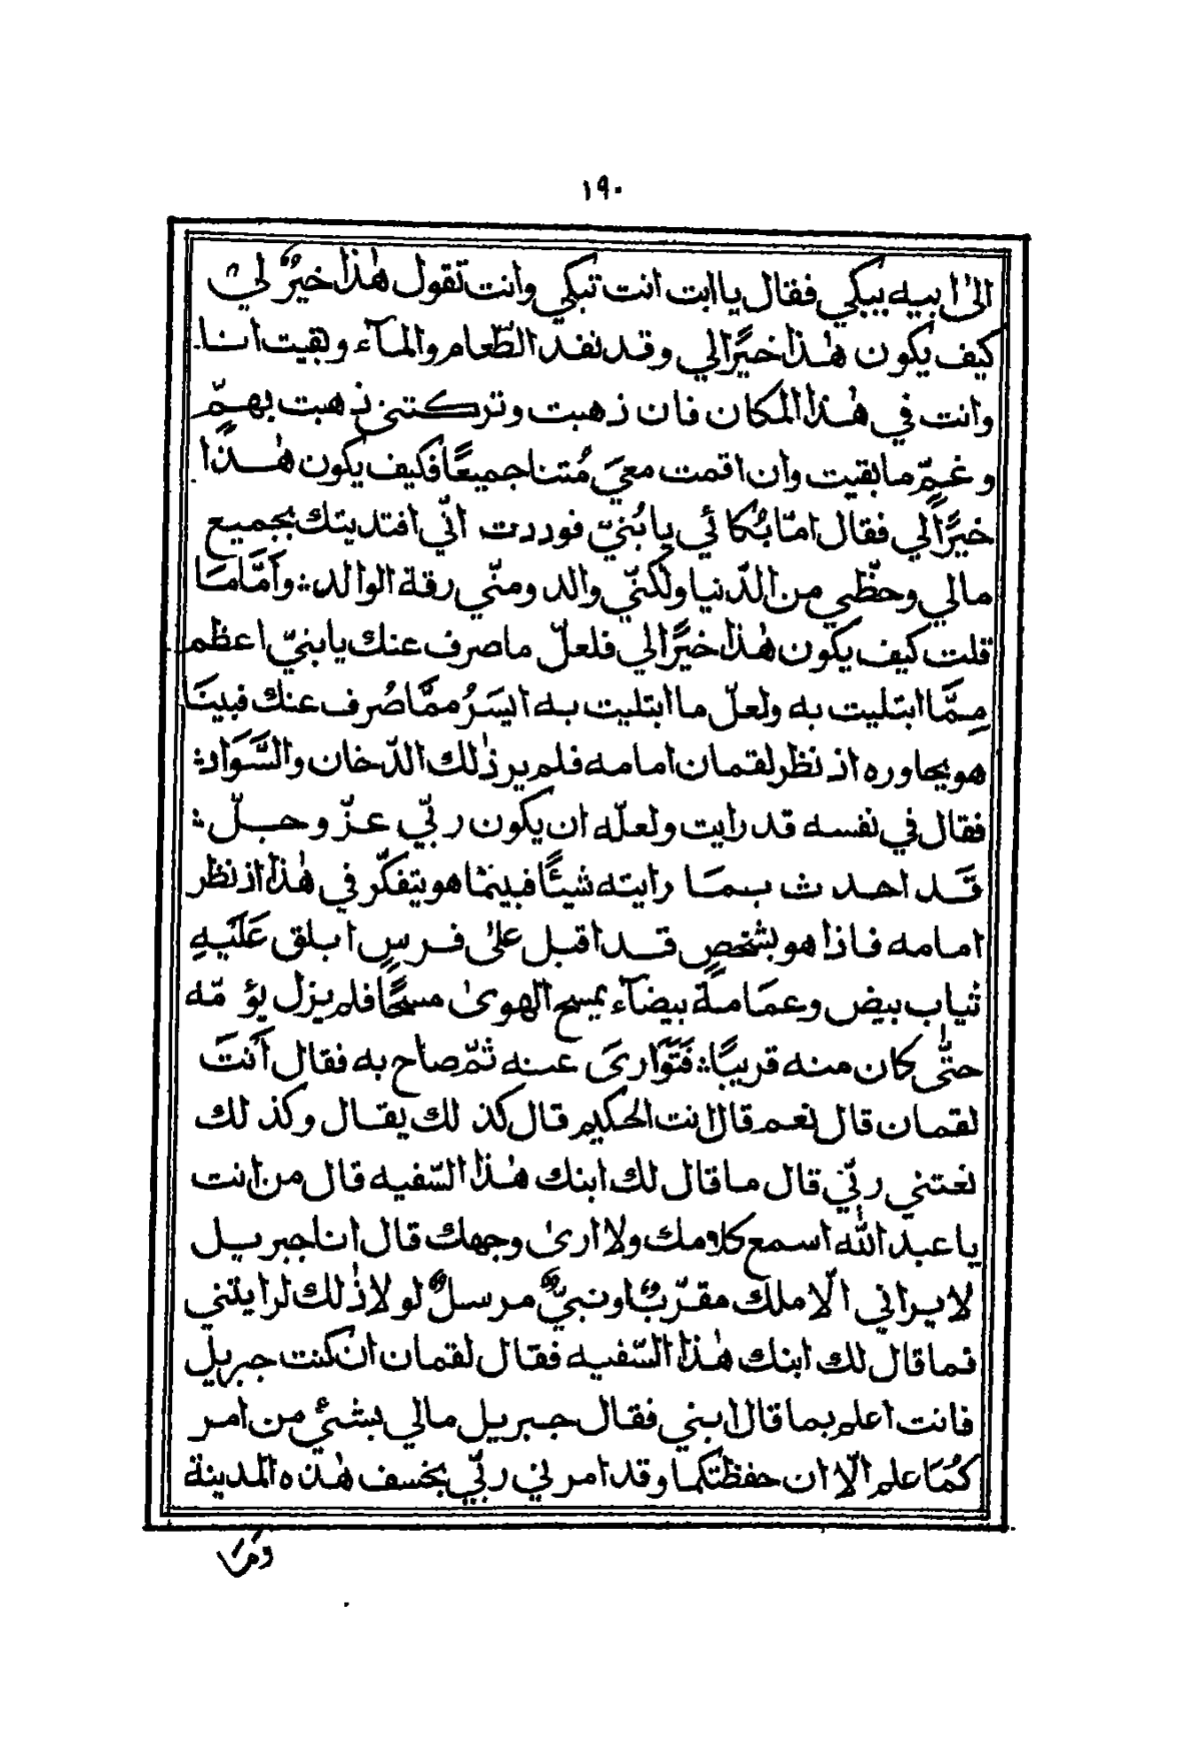 ١٩٠
الىٰ ابيه يبكي فقال يا ابت انت تبكي وانت تقول هٰذا خيرٌ لي
كيف يكون هٰذا خيرًا لي وقد نفد الطّعام والمآء وبقيت انا
وانت في هٰذا المكان فان ذهبت وتركتني ذهبت بهمّ
وغمٍّ ما بقيت وان اقمت معيَ مُتنا جميعًا فكيف يكون هٰذا
خيرًا لي فقال امّا بُكائي يا بُنيّ فوددت انّي افتديتك بجميع
مالي وحظّي من الدّنيا ولكنّي والد ومنّي رقة الوالد: وَأمَّا مَا
قلت كيف يكون هٰذا خيرًا لي فلعلّ ما صرف عنك يا بنيّ اعظم
مِمَّا ابتليت به ولعلّ ما ابتليت به ايسَرُ ممَّا صُرف عنك فبينَا
هو يحاوره اذ نظر لقمان امامه فلم ير ذٰلك الدّخان والسَّوَاد:
فقال في نفسه قد رايت ولعلّه ان يكون ربّي عزّ وجلّ:
قَد احدث بمَا رايته شيئًا فبينما هو يتفكّر في هٰذا اذ نظر
امامه فاذا هو بشخصٍ قد اقبل علىٰ فرسٍ ابلق عَلَيْهِ
ثياب بيض وعمَامَة بيضآء يمسح الهوىٰ مسحًا فلم يزل يؤمّه
حتّٰى كان منه قريبًا: فَتَوَارىَ عنه ثمّ صاح به فقال أنتَ
لقمان قال نعم قال انت الحكيم قال كذلك يقال وكذلك
نعتني ربّي قال ما قال لك ابنك هٰذا السّفيه قال من انت
يا عبد الله اسمع كلامك ولا ارىٰ وجهك قال انا جبريل
لا يراني الّا ملك مقرّبٌ او نبيٌّ مرسلٌ لولا ذٰلك لرايتني
فما قال لك ابنك هٰذا السّفيه فقال لقمان ان كنت جبريل
فانت اعلم بما قال ابني فقال جبريل مالي بشئ من امر
كُمَا علم الّا ان حفظتكما وقد امرني ربّي بخسف هٰذه المدينة
وَمَا